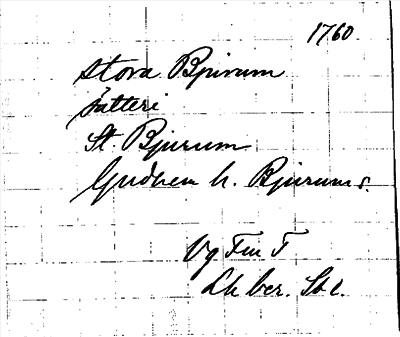 1760.
Stora Bjurum
säteri
St. Bjurum
Gudhem h. Bjurum s.
Vg
Lk ber. St. l.